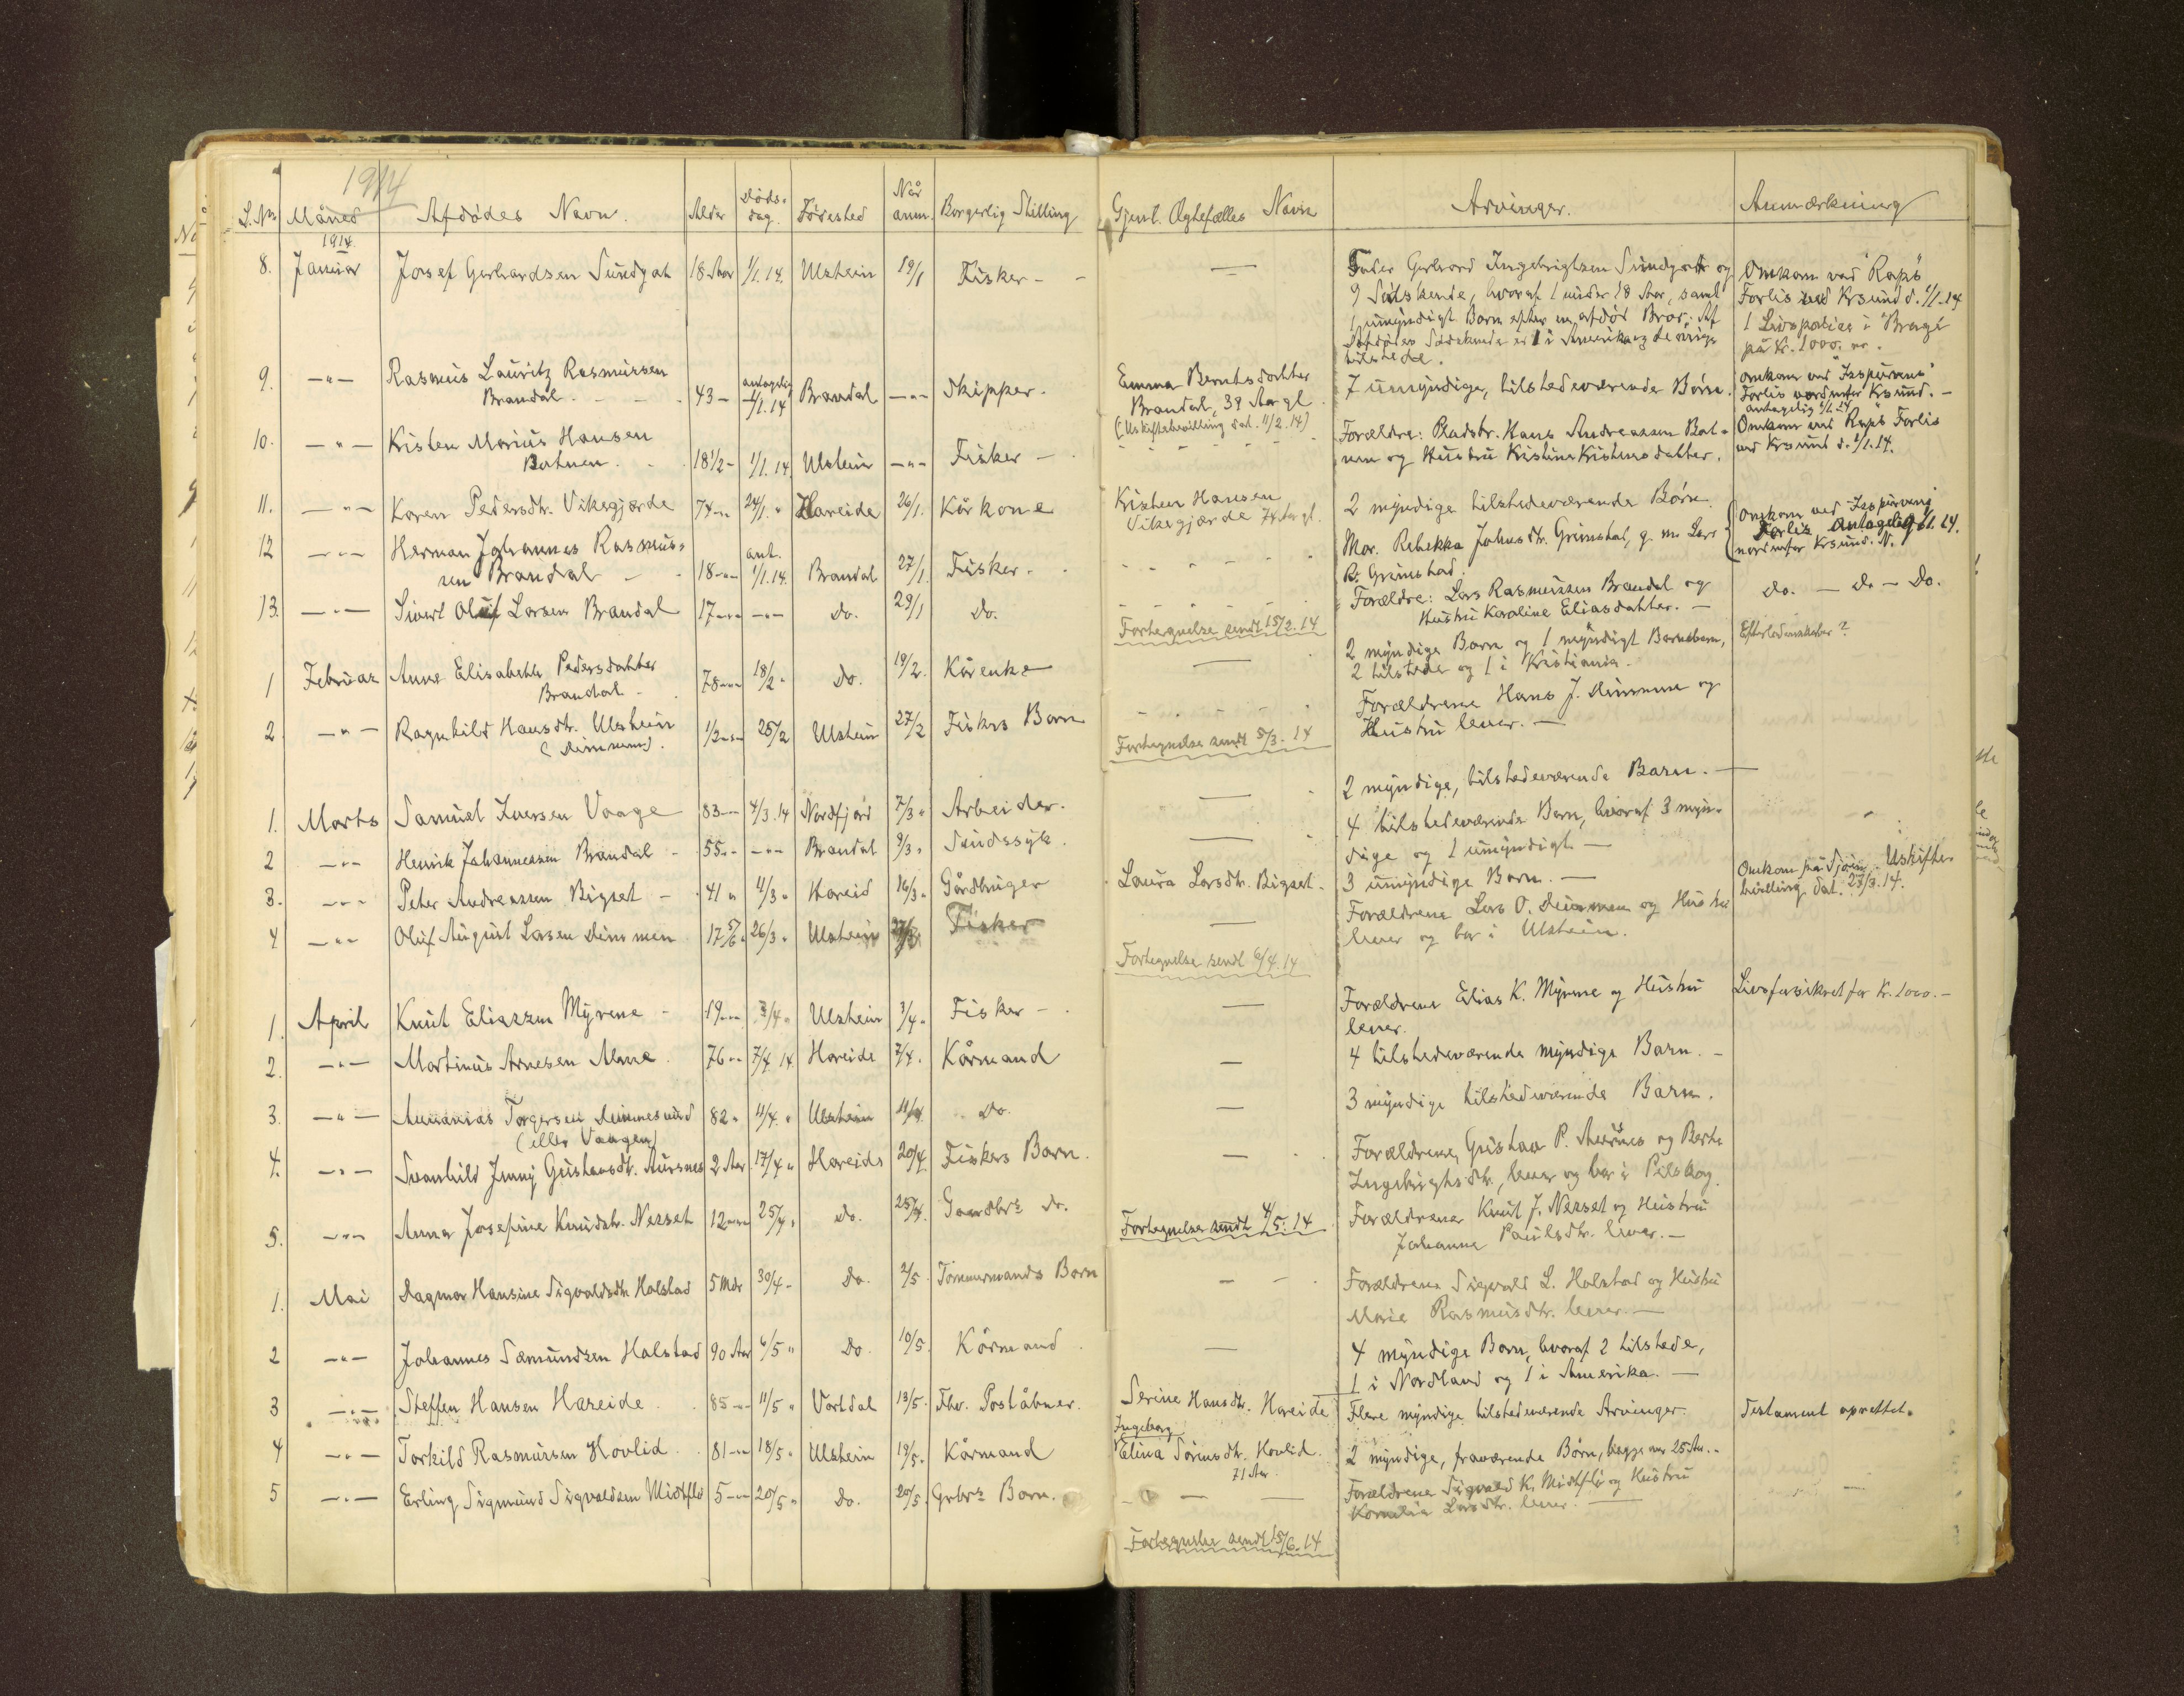 1914
L.Nr. Måned Afdødes Navn. Alder Døds-dag. Fødested Når anm. Borgerlig Stilling Gjenl. Ægtefælles Navn Arvinger. Anmærkning
1914.
8. Januar Josef Gerhardsen Sundgot 18 Aar 1/1.14. Ulstein 19/1 Fisker - - — Fader Gerhard Ingebrigtsen Sundgot og
9 Sødskende, hvoraf 1 under 18 Aar, samt
1 umyndigt Barn efter en afdød Bror. Af
Afdødes Sødskende er 1 i Amerika og de øvrige
tilstede.
Omkom ved "Rapš"
Forlis ved Krsund d. 1/1.14
1 Livspolice i "Brage"
på Kr. 1000.
9. —"— Rasmus Lauritz Rasmussen
Brandal. 43 — antagelig 1/1.14 Brandal —"— Skipper. Emma Berntsdatter
Brandal, 39 Aar gl.
(Uskiftebevilling dat. 11/2.14)
7 umyndige, tilstedeværende Børn.
omkom ved "Isspurvens"
Forlis nordenfor Krsund. —
antagelig 1/1.14
10. —"— Kristen Marius Hansen
Botnen. 18 1/2 — 1/1.14. Ulstein —"— Fisker — Forældre: Pladsbr. Hans Andreassen Bot-
nen og Hustru Kristine Kristensdatter.
Omkom ved "Raps" Forlis
ved Krsund d. 1/1.14.
11. —"— Karen Pedersdtr. Vikegjærde 74 —"— 24/1. " Hareide 26/1. Kårkone Kristen Hansen
Vikegjærde 74 Aar gl.
2 myndige tilstedeværende Børn.
12 —"— Herman Johannes Rasmus-
sen Brandal — 18 —"— ant. 1/1.14. Brandal 27/1. Fisker. Mor. Rebekka Johnsdtr. Grimstad, g. m. Lars
R. Grimstad.
Omkom ved "Isspurvens"
Forlis antagelig 1/1.14.
nordenfor Krsund. N.
13. —"— Sivert Oluf Larsen Brandal 17 —"— —"— Do. 29/1 Do. Forældre: Lars Rasmussen Brandal og
Hustru Karoline Eliasdatter. —
Do. — Do — Do.
Fortegnelse sendt 15/2.14
1 Februar Anne Elisabeth Pedersdatter
Brandal — 78 —"— 18/2 " Do. 19/2. Kårenke — 2 myndige Børn og 1 myndigt Barnebarn,
2 tilstede og 1 i Kristiania.
Efterladenskaber?
2 —"— Ragnhild Hansdtr. Ulstein
(Dimmen). 1/2 —"— 25/2 Ulstein 27/2 Fiskers Barn Forældrene Hans J. Dimmen og
Hustru lever. —
Fortegnelse sendt 5/3.14
1. Marts Samuel Iversen Vaage 83 —"— 4/3.14 Nordfjord 7/3 " Arbeider. — 2 myndige, tilstedeværende Børn. —
2 —"— Henrik Johannessen Brandal — 55 —"— —"— Brandal 9/3 " Sindssyk. — 4 tilstedeværende Børn, hvoraf 3 myn-
dige og 1 umyndigt. —
3. —"— Peter Andreassen Bigset — 41 " 11/3 " Hareid 16/3 " Gårdbruger Laura Larsdtr. Bigset. 3 umyndige Børn. —
Omkom på Sjøen. Uskifte-
bevilling dat. 27/3.14.
4 —"— Oluf August Larsen Dimmen 17 5/6 " 26/3 " Ulstein 27/3 Fisker — Forældrene Lars O. Dimmen og Hustru
lever og bor i Ulstein.
Fortegnelse sendt 6/4.14
1. April Knut Eliassen Myrene — 19 —"— 2/4 " Ulstein 3/4 " Fisker — — Forældrene Elias K. Myrene og Hustru
lever.
Livsforsikret for Kr. 1000. —
2. —"— Martinus Arnesen Alme. 76 —"— 7/4 14 Hareide 7/4. Kårmand — 4 tilstedeværende myndige Børn. —
3. —"— Ananias Torgersen Dimmesund
(eller Vaagen) 82 " 11/4. " Ulstein 11/4 Do. — 3 myndige tilstedeværende Børn.
4. —"— Svanhild Jenny Gustavsdtr. Aursnes 2 Aar 17/4 " Hareids 20/4 Fiskers Barn. — Forældrene, Gustav P. Aursnes og Berte
Ingebrigtsdtr., lever og bor i Pilskog.
5. —"— Anna Josefine Knudsdtr. Nesset 12 —"— 25/4 " Do. 25/4. Gaardbrs Do. Forældrene Knut J. Nesset og Hustru
Johanna Paulsdtr. lever. —
Fortegnelse sendt 4/5.14
1. Mai Dagmar Hansine Sigvaldsdtr. Holstad 5 Mdr 30/4 — Do. 2/5. Tømmermands Barn — Forældrene Sigvald L. Holstad og Hustru
Marie Rasmusdtr. lever. —
2 —"— Johannes Sæmundsen Holstad 90 Aar 6/5 " Do. 10/5. Kårmand — 4 myndige Børn, hvoraf 2 tilstede,
1 i Nordland og 1 i Amerika. —
3 —"— Steffen Hansen Hareide. 85 —"— 11/5 " Vartdal 13/5. Fhv. Poståbner. Serine Hansdtr. Hareide Flere myndige tilstedeværende Arvinger. Testament oprettet.
4 —"— Torkild Rasmussen Hovlid 81 —"— 18/5 " Ulstein 19/5. Kårmand Ingeborg
Elina Sørensdtr. Hovlid.
71 Aar.
2 myndige, fraværende Børn, begge over 25 Aar.
5 —"— Erling Sigmund Sigvaldsen Midtflø 5 —"— 20/5 " Do. 20/5. Grbrs Barn. — Forældrene Sigvald K. Midtflø og Hustru
Kornelia Larsdtr. lever. —
Fortegnelse sendt 15/6.14